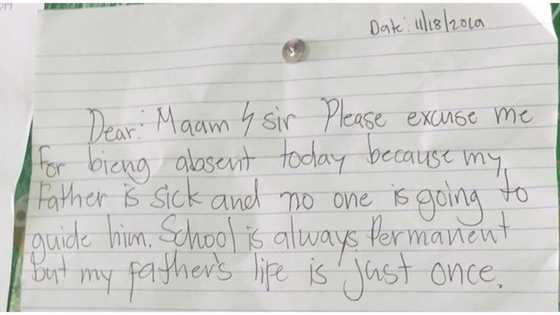 Date: 11/18/2019
Dear: Maam & sir Please excuse me
For bieng absent today because my
Father is sick and no one is going to
guide him. School is always Permanent
but my father's life is just once.